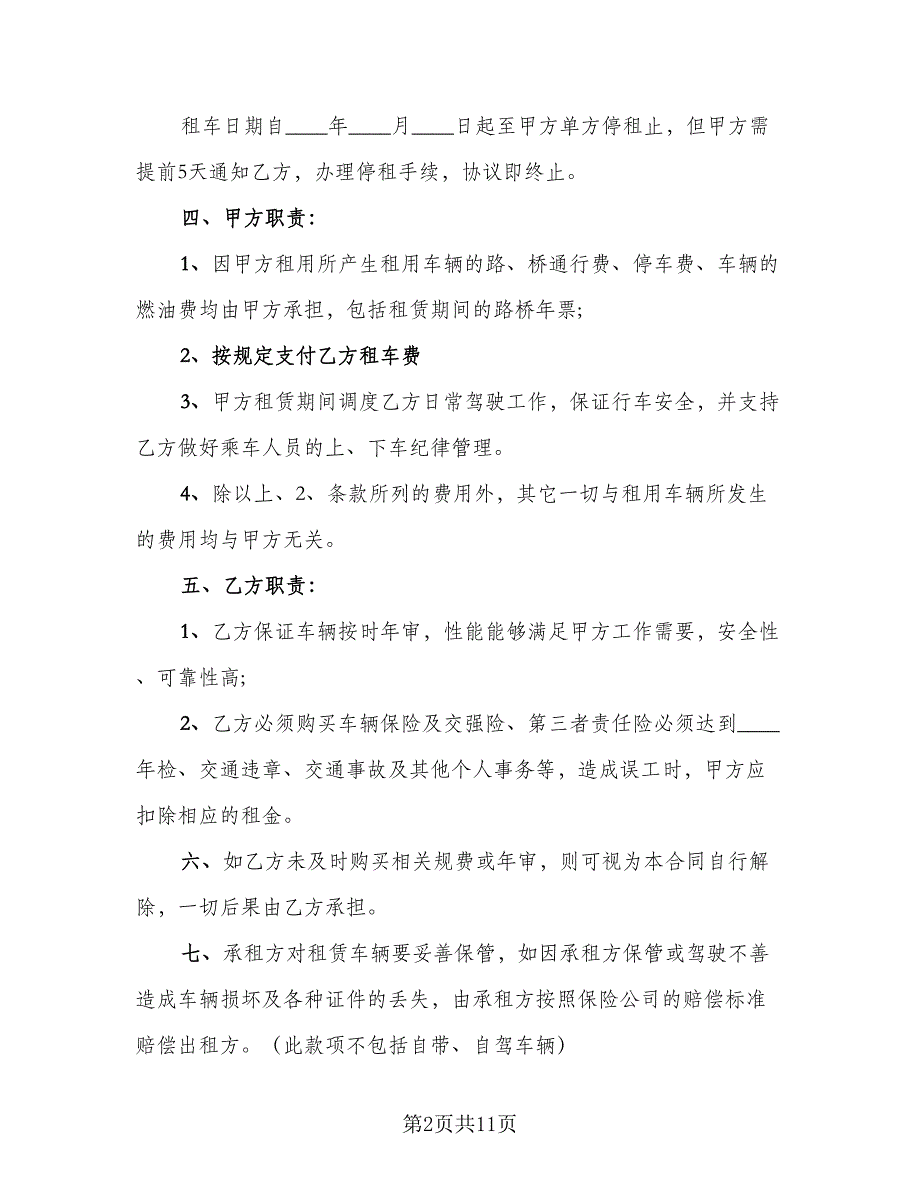 租车日期自____年____月____日起至甲方单方停租止，但甲方需
提前5天通知乙方，办理停租手续，协议即终止。
四、甲方职责：
1、因甲方租用所产生租用车辆的路、桥通行费、停车费、车辆的
燃油费均由甲方承担，包括租赁期间的路桥年票;
2、按规定支付乙方租车费
3、甲方租赁期间调度乙方日常驾驶工作，保证行车安全，并支持
乙方做好乘车人员的上、下车纪律管理。
4、除以上、2、条款所列的费用外，其它一切与租用车辆所发生
的费用均与甲方无关。
五、乙方职责：
1、乙方保证车辆按时年审，性能能够满足甲方工作需要，安全性
、可靠性高;
2、乙方必须购买车辆保险及交强险、第三者责任险必须达到____
年检、交通违章、交通事故及其他个人事务等，造成误工时，甲方应
扣除相应的租金。
六、如乙方未及时购买相关规费或年审，则可视为本合同自行解
除，一切后果由乙方承担。
七、承租方对租赁车辆要妥善保管，如因承租方保管或驾驶不善
造成车辆损坏及各种证件的丢失，由承租方按照保险公司的赔偿标准
赔偿出租方。（此款项不包括自带、自驾车辆）
第2页共11页